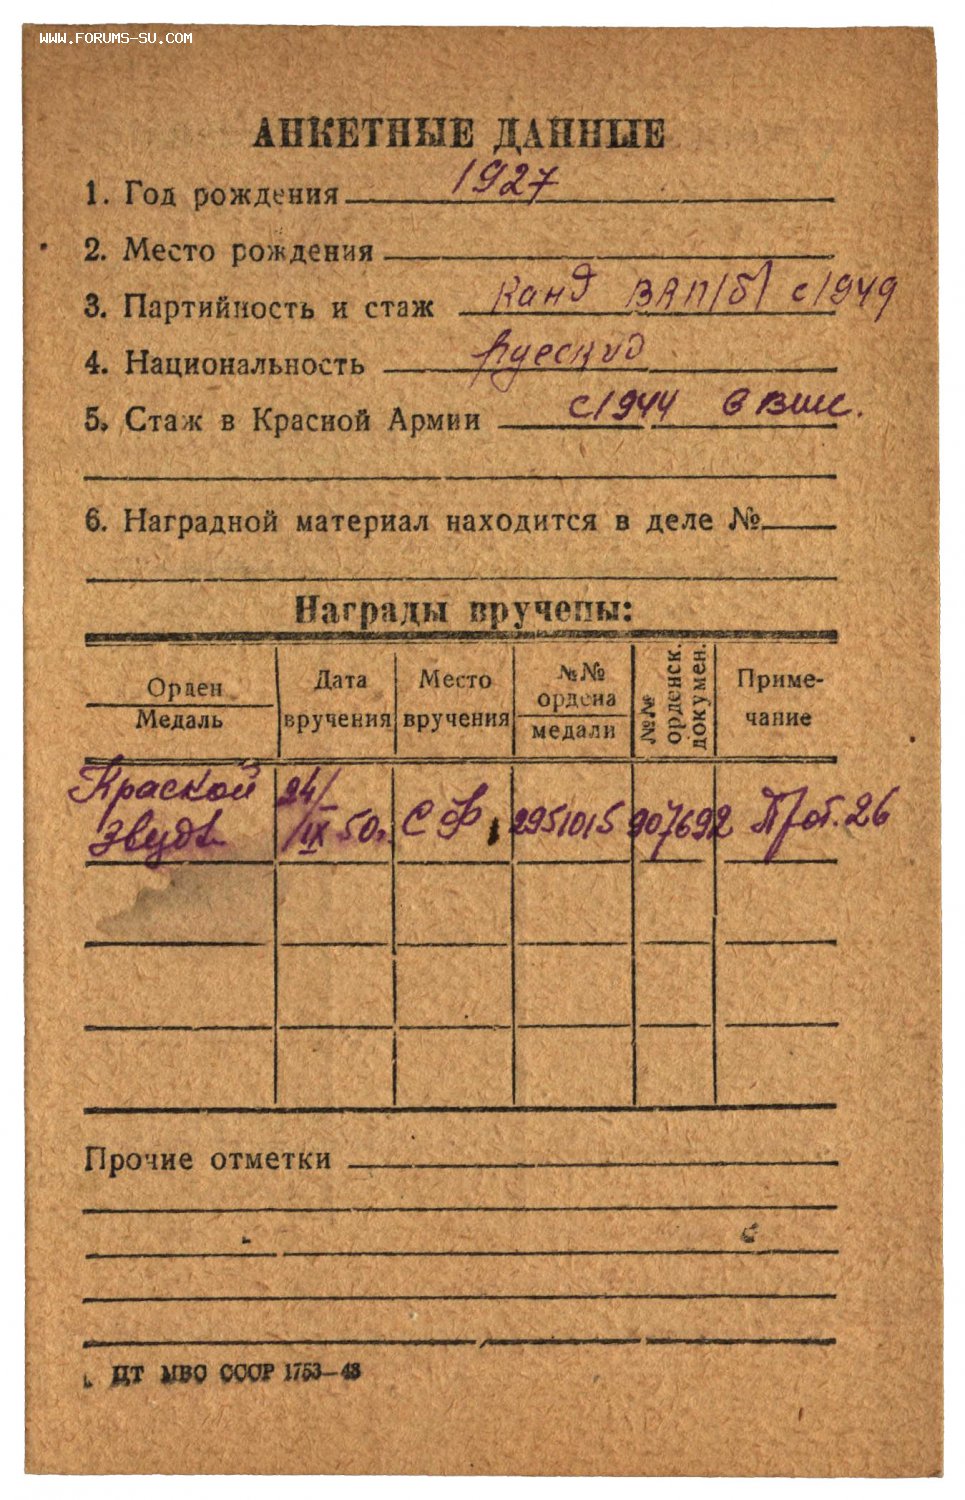 WWW.FORUMS-SU.COM
АНКЕТНЫЕ ДАННЫЕ
1. Год рождения 1927
2. Место рождения
3. Партийность и стаж Канд ВКП(б) с 1949
4. Национальность Русский
5. Стаж в Красной Армии с 1944 в ВМС.
6. Наградной материал находится в деле №
Награды вручены:
Орден
Медаль
Дата
вручения
Место
вручения
№№
ордена
медали
№№
орденск.
докумен.
Приме-
чание
Красной
Звезды
24/
IX 50г.
СФ
2951015
907692
Прот. 26
Прочие отметки
ЦТ МВО СССР 1753—43